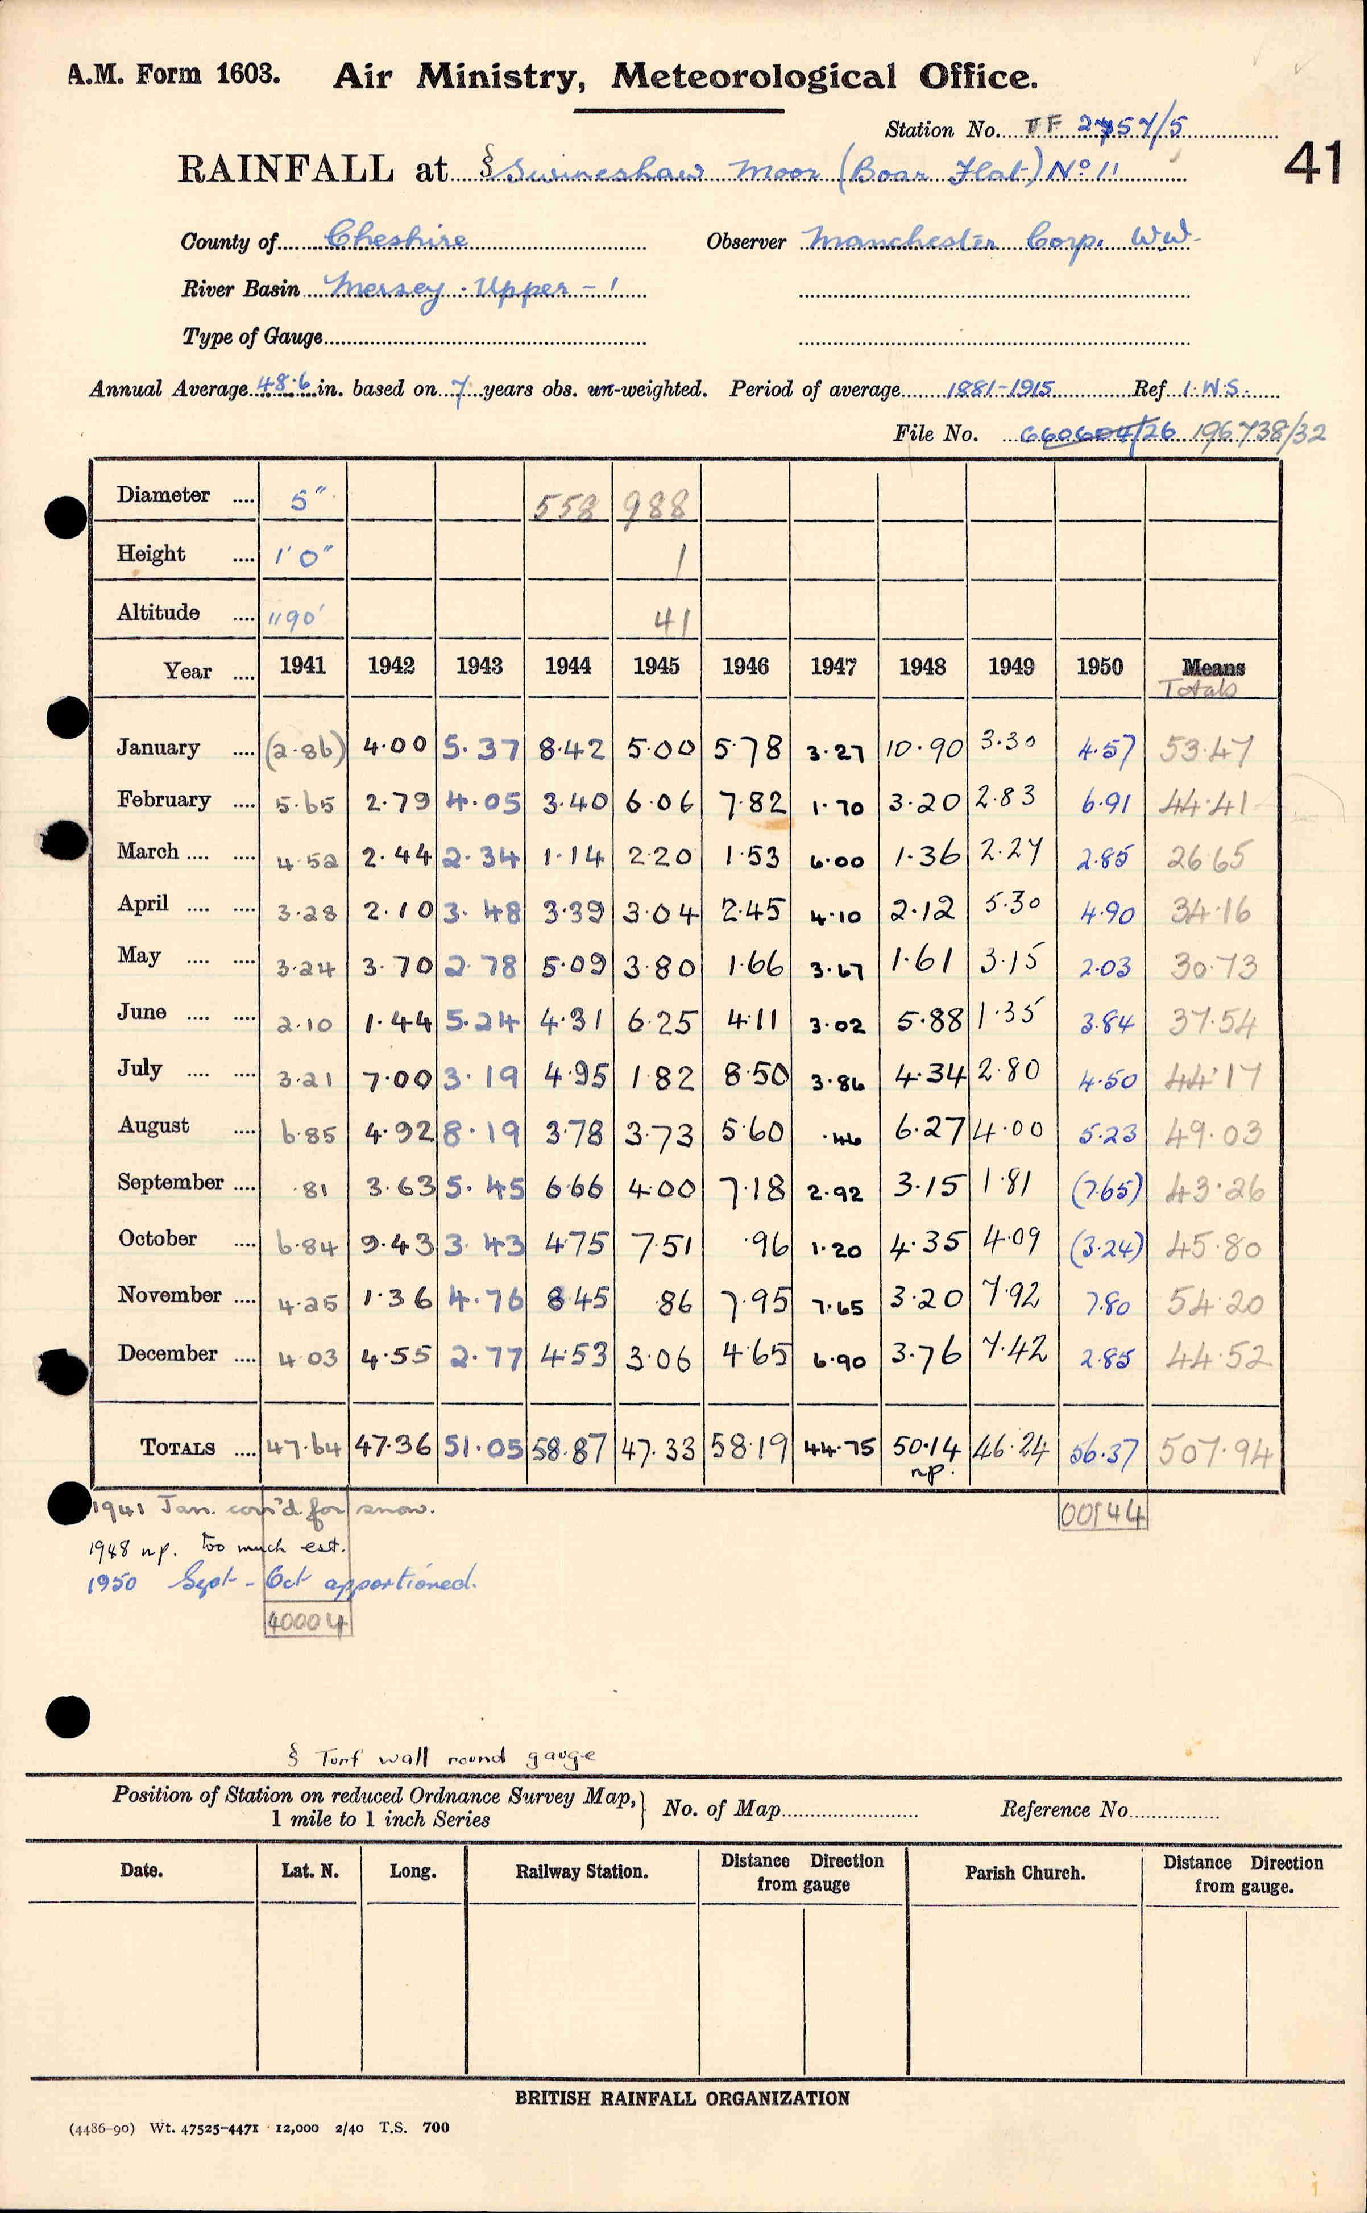 A.M. Form 1603. Air Ministry, Meteorological Office.
Station No. TF 2757/5
41
RAINFALL at § Swineshaw Moor (Boar Flat) No 11
County of Cheshire Observer Manchester Corp. W.W.
River Basin Mersey - Upper - 1
Type of Gauge
Annual Average 48.6 in. based on 7 years obs. un-weighted. Period of average 1881-1915 Ref I.W.S.
File No. 660604/26 196738/32
Diameter 5" 558 988
Height 1'0" 1
Altitude 1190' 41
Year 1941 1942 1943 1944 1945 1946 1947 1948 1949 1950 Means
Totals
January (2.86) 4.00 5.37 8.42 5.00 5.78 3.27 10.90 3.30 4.57 53.47
February 5.65 2.79 4.05 3.40 6.06 7.82 1.70 3.20 2.83 6.91 44.41
March 4.52 2.44 2.34 1.14 2.20 1.53 6.00 1.36 2.27 2.85 26.65
April 3.28 2.10 3.48 3.39 3.04 2.45 4.10 2.12 5.30 4.90 34.16
May 3.24 3.70 2.78 5.09 3.80 1.66 3.67 1.61 3.15 2.03 30.73
June 2.10 1.44 5.24 4.31 6.25 4.11 3.02 5.88 1.35 3.84 37.54
July 3.21 7.00 3.19 4.95 1.82 8.50 3.86 4.34 2.80 4.50 44.17
August 6.85 4.92 8.19 3.78 3.73 5.60 .46 6.27 4.00 5.23 49.03
September .81 3.63 5.45 6.66 4.00 7.18 2.92 3.15 1.81 (7.65) 43.26
October 6.84 9.43 3.43 4.75 7.51 .96 1.20 4.35 4.09 (3.24) 45.80
November 4.25 1.36 4.76 8.45 86 7.95 7.65 3.20 7.92 7.80 54.20
December 4.03 4.55 2.77 4.53 3.06 4.65 6.90 3.76 7.42 2.85 44.52
TOTALS 47.64 47.36 51.05 58.87 47.33 58.19 44.75 50.14 46.24 56.37 507.94
np.
1941 Jan. corr'd for snow. 00144
1948 np. too much est.
1950 Sept - Oct apportioned.
40004
§ Turf wall round gauge
Position of Station on reduced Ordnance Survey Map,
1 mile to 1 inch Series } No. of Map Reference No.
Date. Lat. N. Long. Railway Station. Distance Direction from gauge Parish Church. Distance Direction from gauge.
BRITISH RAINFALL ORGANIZATION
(4486-90) Wt. 47525-4471 12,000 2/40 T.S. 700